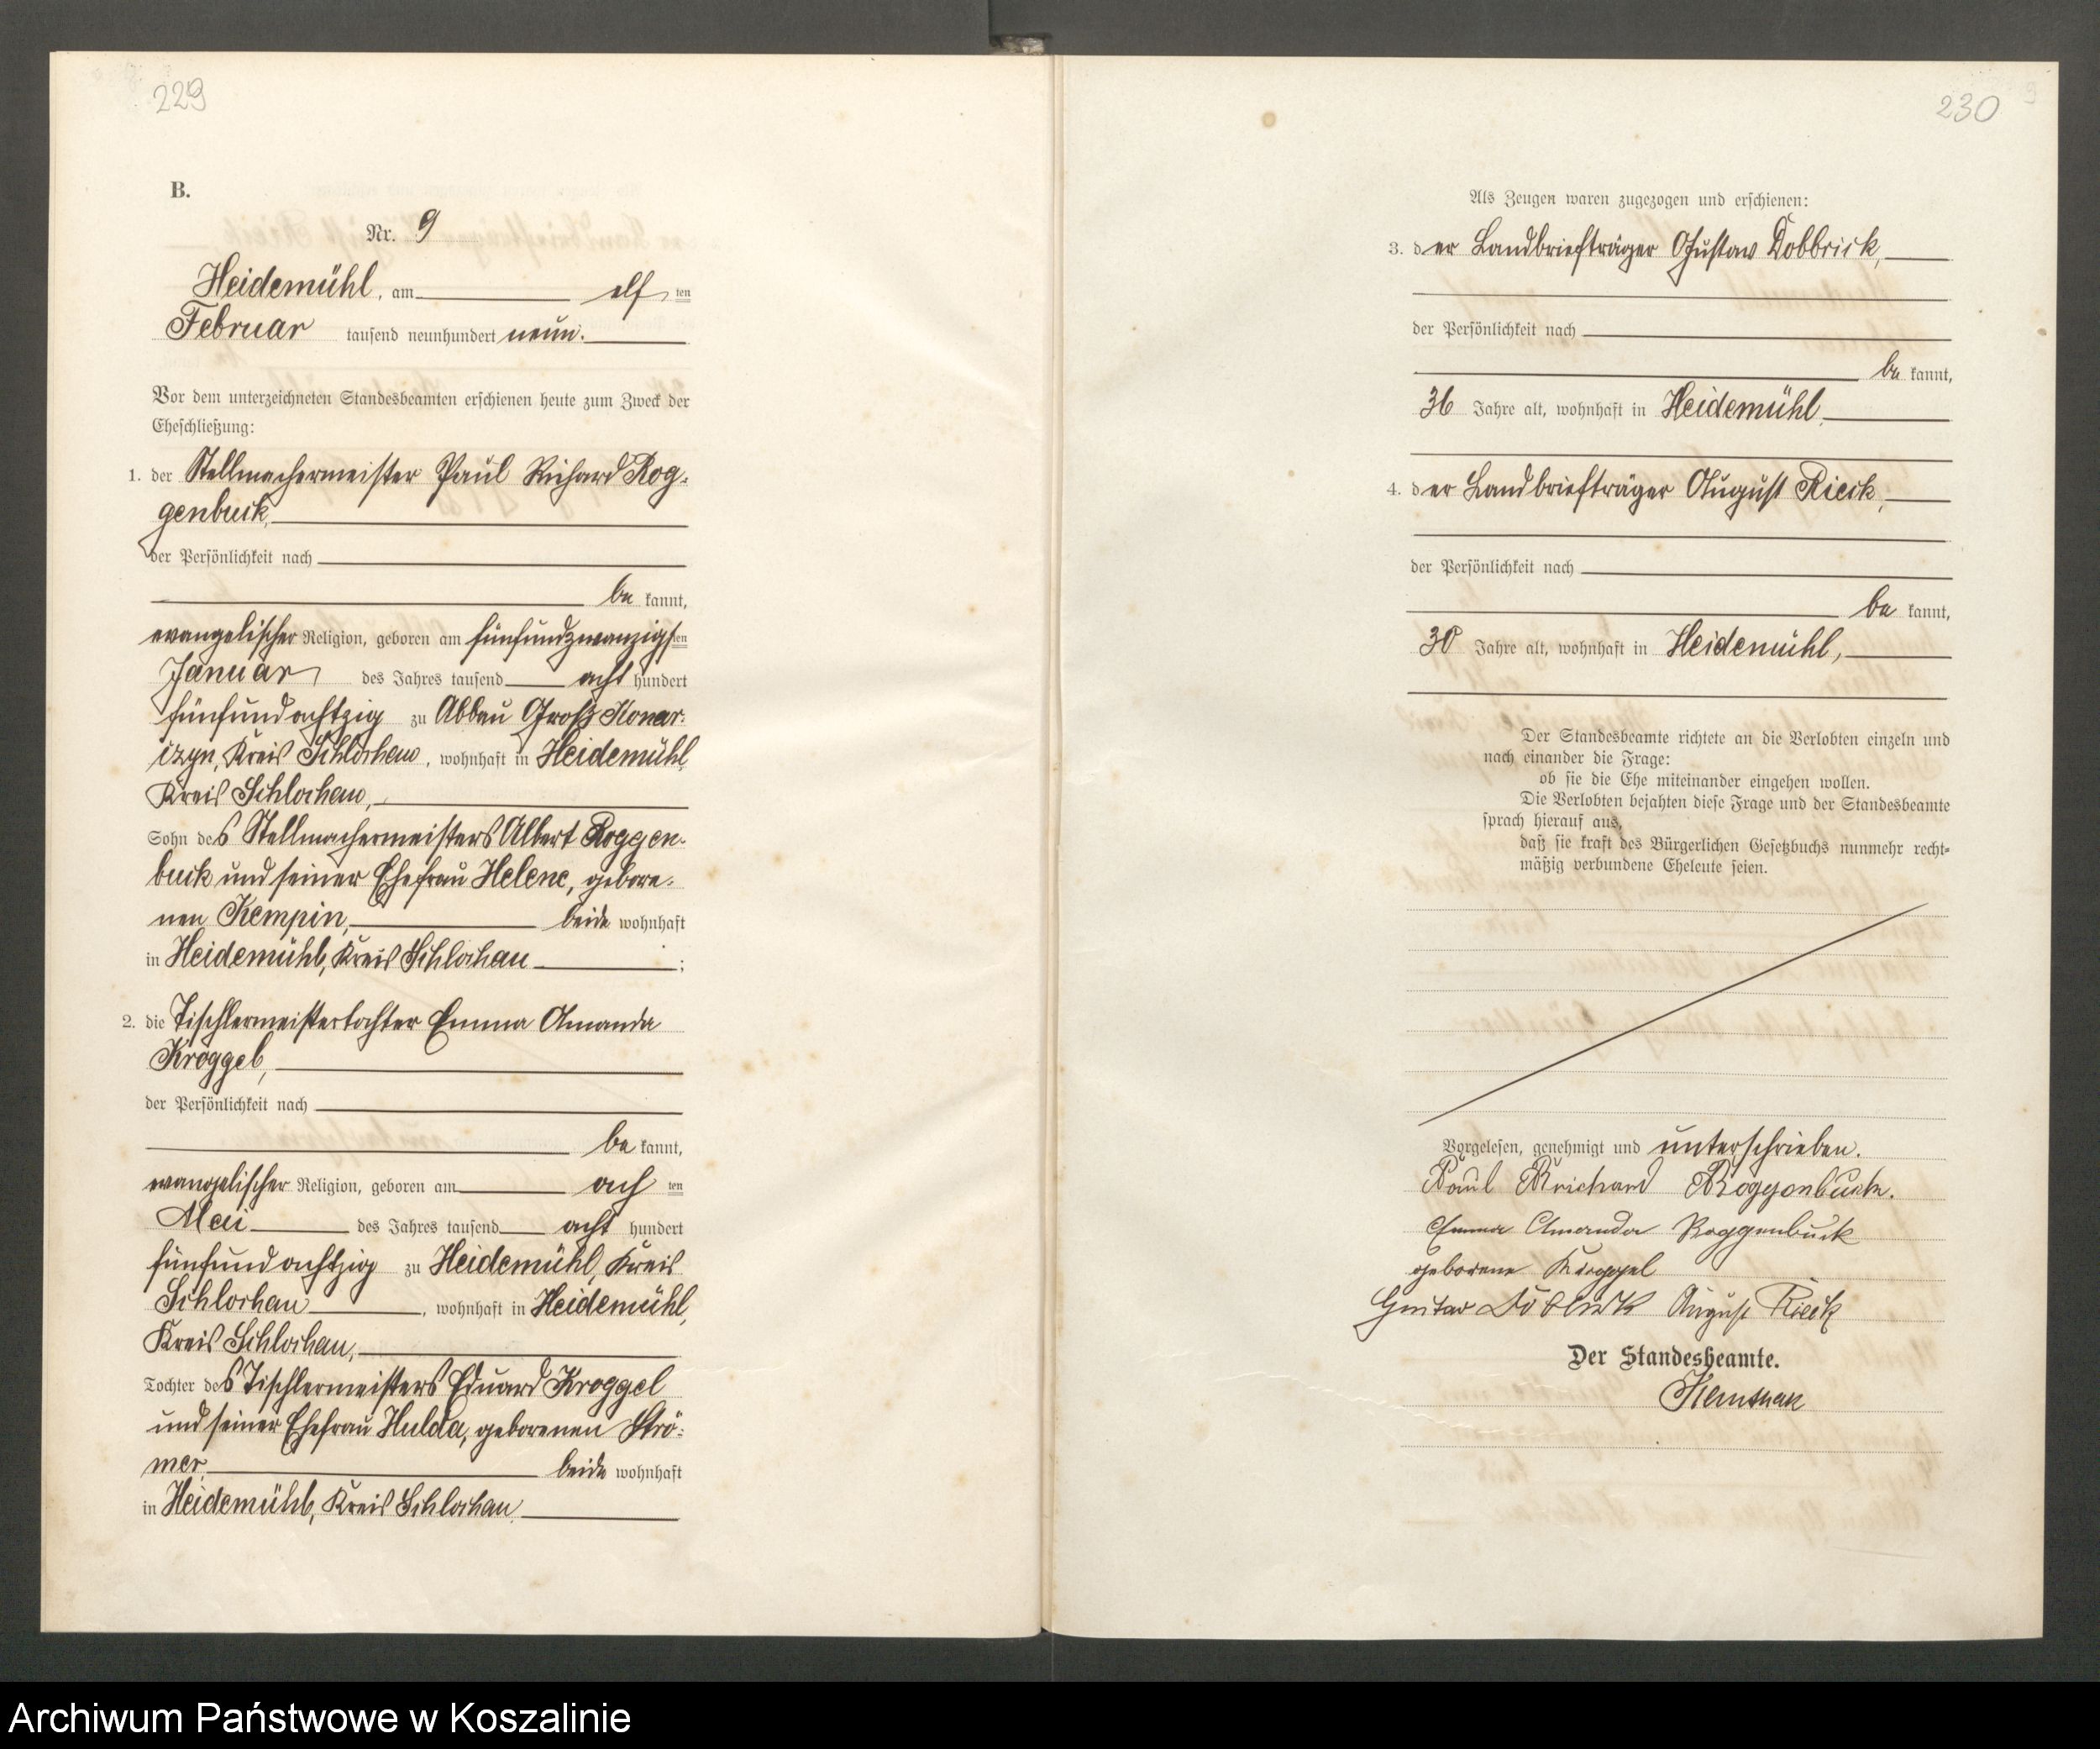 229
B.
Nr. 9
Heidemühl, am elf ten
Februar tausend neunhundert neun.
Vor dem unterzeichneten Standesbeamten erschienen heute zum Zweck der
Eheschließung:
1. der Stellmachermeister Paul Richard Rog-
genbuck,
der Persönlichkeit nach
be kannt,
evangelischer Religion, geboren am fünfundzwanzigsten
Januar des Jahres tausend acht hundert
fünfundachtzig zu Abbau Groß Konar-
czyn, Kreis Schlochau, wohnhaft in Heidemühl,
Kreis Schlochau,
Sohn des Stellmachermeisters Albert Roggen-
buck und seiner Ehefrau Helene, gebore-
nen Kempin, beide wohnhaft
in Heidemühl, Kreis Schlochau ;
2. die Tischlermeistertochter Emma Amanda
Kroggel,
der Persönlichkeit nach
be kannt,
evangelischer Religion, geboren am ach ten
Mai des Jahres tausend acht hundert
fünfundachtzig zu Heidemühl, Kreis
Schlochau, wohnhaft in Heidemühl,
Kreis Schlochau,
Tochter des Tischlermeisters Eduard Kroggel
und seiner Ehefrau Hulda, geborenen Strö-
mer beide wohnhaft
in Heidemühl, Kreis Schlochau.
230
Als Zeugen waren zugezogen und erschienen:
3. der Landbriefträger Gustav Dobbrick,
der Persönlichkeit nach
be kannt,
36 Jahre alt, wohnhaft in Heidemühl,
4. der Landbriefträger August Rieck,
der Persönlichkeit nach
be kannt,
30 Jahre alt, wohnhaft in Heidemühl,
Der Standesbeamte richtete an die Verlobten einzeln und
nach einander die Frage:
ob sie die Ehe miteinander eingehen wollen.
Die Verlobten bejahten diese Frage und der Standesbeamte
sprach hierauf aus,
daß sie kraft des Bürgerlichen Gesetzbuchs nunmehr recht-
mäßig verbundene Eheleute seien.
Vorgelesen, genehmigt und unterschrieben.
Paul Richard Roggenbuck.
Emma Amanda Roggenbuck
geborene Kroggel
Gustav Dobbrick August Rieck
Der Standesbeamte.
Archiwum Państwowe w Koszalinie